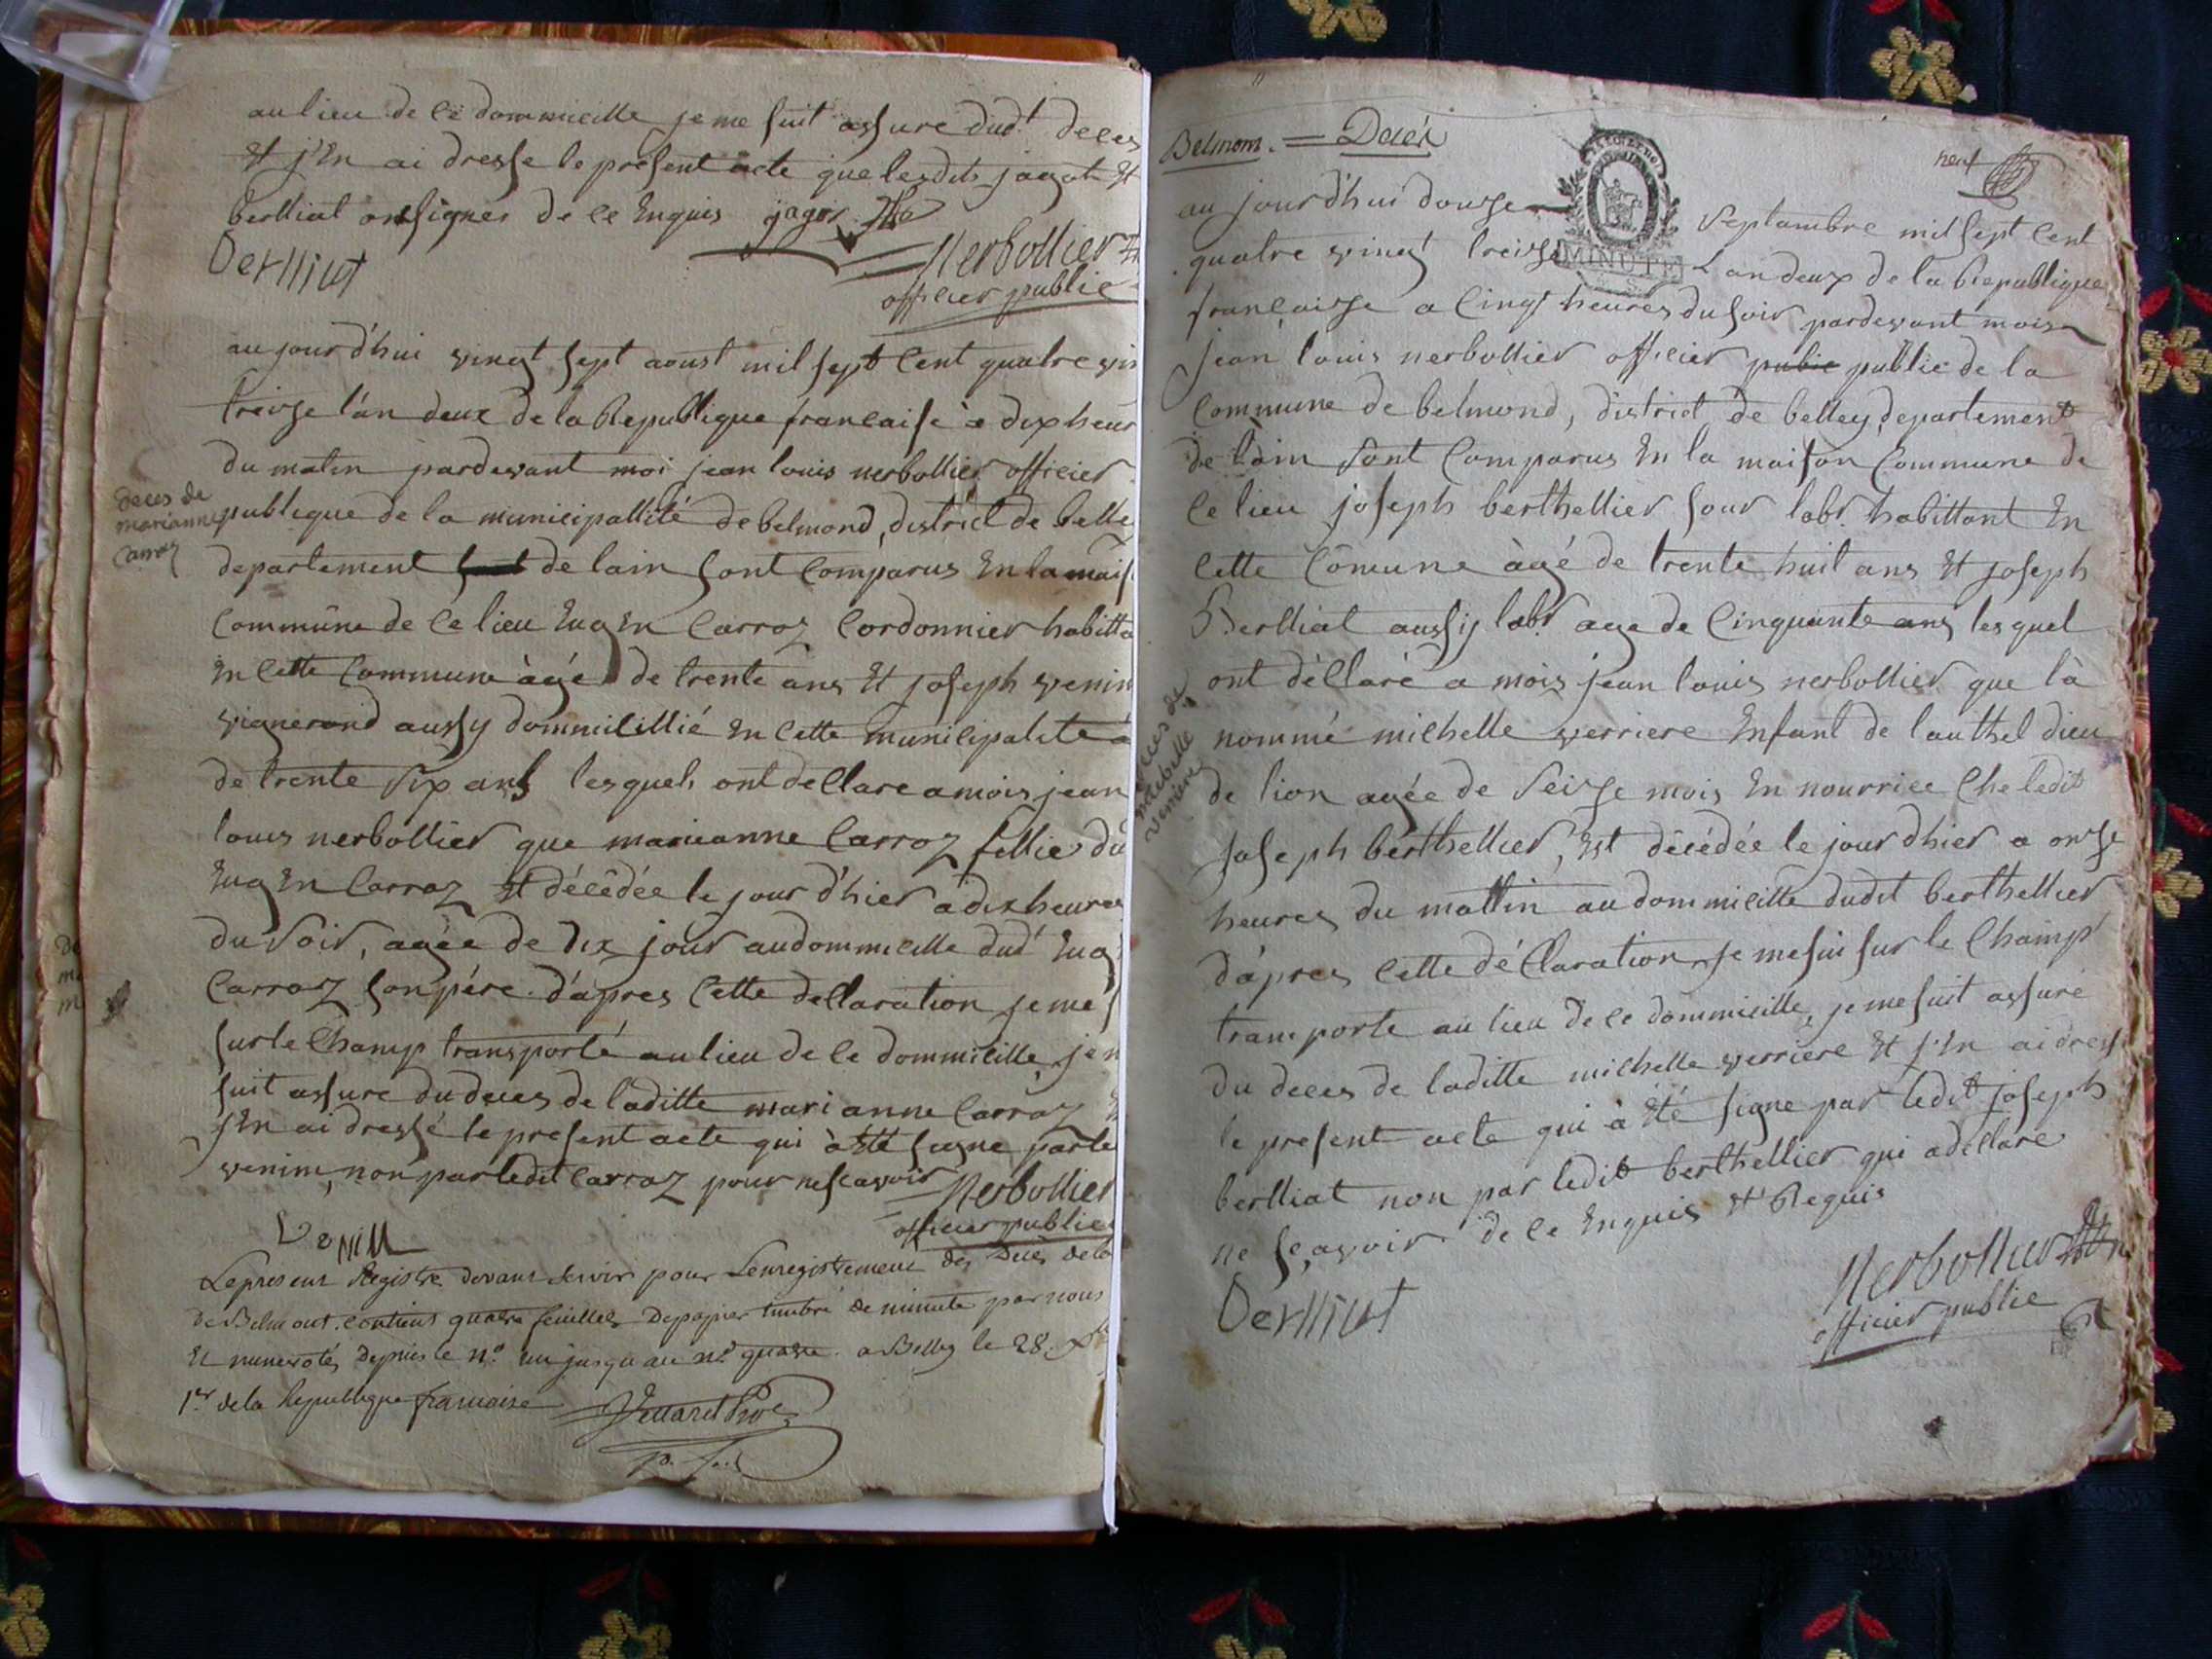 au lieu de ce dommicille je me suit assure dud.t deces
Et j'En ai dresse le present acte que lesdits jagot Et
berlliat onsignes de ce Enquis jagot
Berlliat
Nerbollier
officier public
au jourd'hui vingt sept aoust mil sept Cent quatre vin
treise l'an deux de la Republique francaise à dix heur
du matin pardevant moi jean louis nerbollier officier
deces de
marianne
Carroz
publique de la municipallité de belmond, district de belle
departement de lain sont Comparus En la mais
Commune de Ce lieu Eugen Carroz Cordonnier habitta
En Cette Commune àgé de trente ans Et joseph venin
vignerond aussy dommicillié En Cette municipalite a
de trente six ans lesquels ont declare a mois jean
louis nerbollier que marieanne Carroz fillie du
Eugen Carroz Et décédée le jour d'hier à dix heures
du soir, agée de dix jour au dommicille dud.t Eug
Carroz son pére. d'apres Cette declaration je me s
sur le Champ transporté au lieu de Ce dommicille, je m
suit assure du deces de laditte marianne Carroz E
j'En ai dressé le present acte qui à Eté signe par le
venin, non par ledit Carroz pour ne scavoir
Nerbollier
officier public
Venin
Le present Registre devant servir pour L'enregistrement des Décès de la
de Belmont contient quatre feuilles De papier timbré de minute par nous
Et numerotés depuis le n.o un jusqu au n.o quatre. a Belley le 28.
1.er de la Republique francaise
Belmom. = Décés
neuf
au jourd'hui douze septambre mil sept Cent
quatre vingt treise L an deux de la Republique
MINUTE
francaise a Cinq heures du soir pardevant mois
jean louis nerbollier officier pubic public de la
Commune de belmond, district de belley, departement
de làin sont Comparus En la maison Commune de
Ce lieu joseph berthellier sour labr. habittant En
Cette Cômune àgé de trente huit ans Et joseph
Berlliat aussij labr age de Cinquante ans lesquel
ont déllaré a mois jean louis nerbollier que là
deces de
michelle
verriere
nommé michelle verriere Enfant de lauthel dieu
de lion agée de seise mois En nourrice Che ledit
joseph berthellier, Est décédée le jour d'hier a onse
heures du mattin au dommicille dudit berthellier
d'apres Cette déClaration, je me sui sur le Champ
transporte au lieu de ce dommicille, je me suit assuré
du deces de laditte michelle verriere Et j'En ai dress
le present acte qui à Eté signe par ledit joseph
berlliat non par ledit berthellier qui a dellare
ne sçavoir de Ce Enquis Et Requis
Berlliat
Nerbollier
officier public